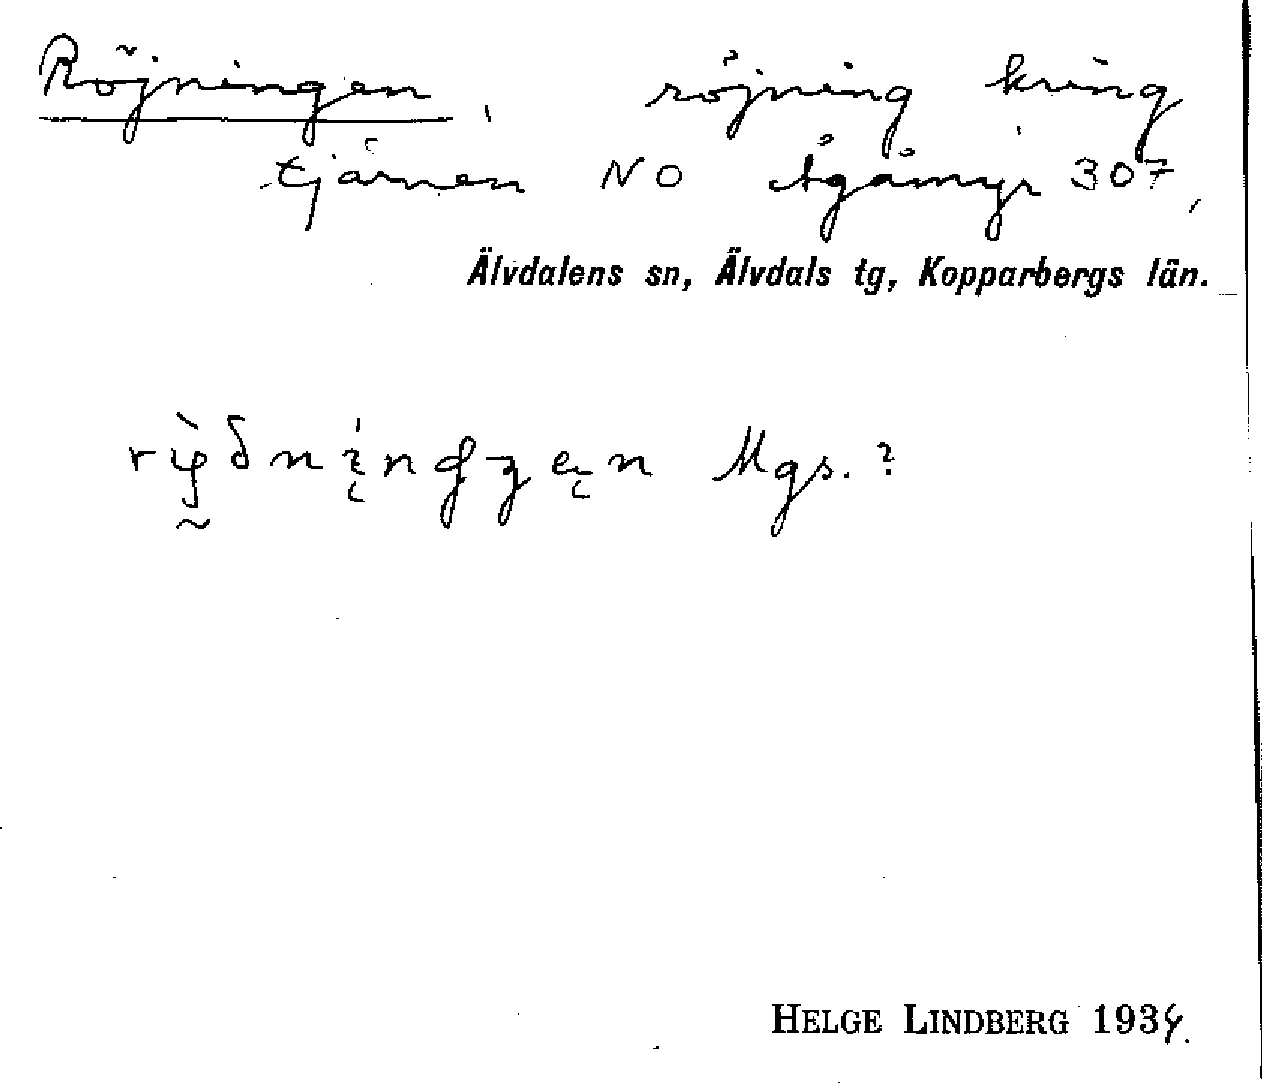 Röjningen, röjning kring
tjärnen NO Ågåmyr 307,
Älvdalens sn, Älvdals tg, Kopparbergs län.
Mgs. ?
HELGE LINDBERG 1934.